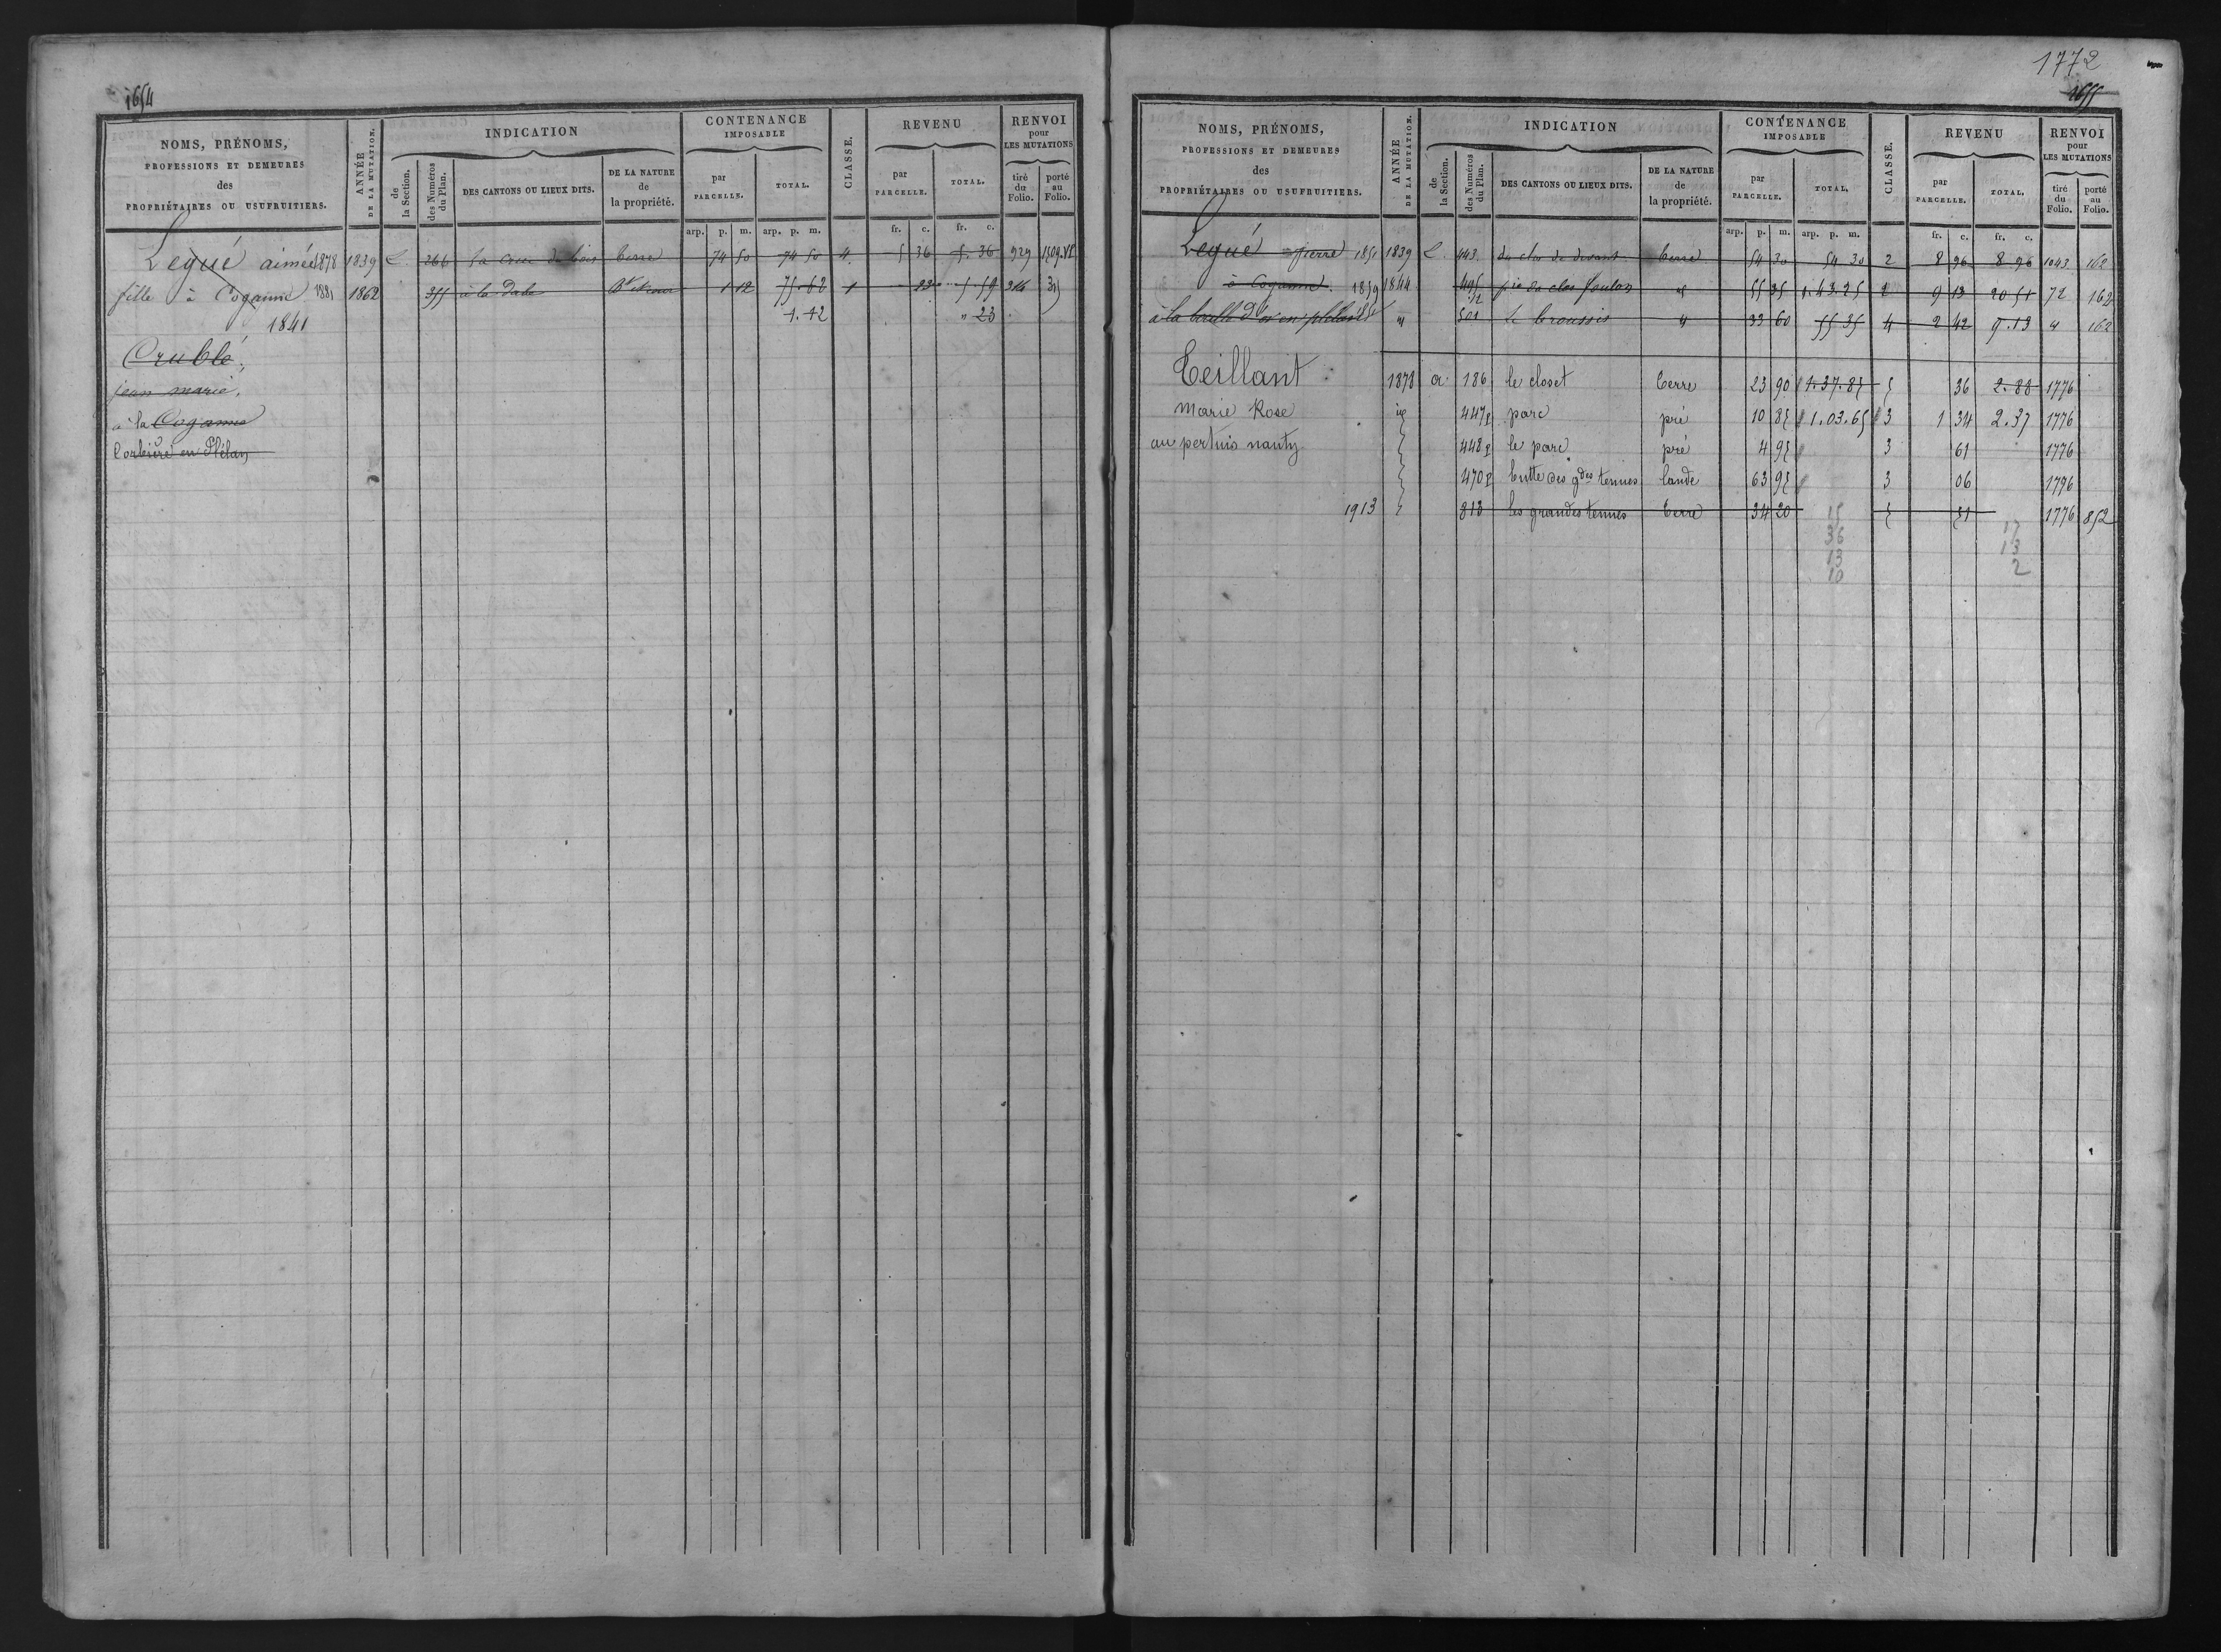 1654
NOMS, PRÉNOMS,
PROFESSIONS ET DEMEURES
des
PROPRIÉTAIRES OU USUFRUITIERS.
ANNÉE
DE LA MUTATION.
INDICATION
de
la Section.
des Numéros
du Plan.
DES CANTONS OU LIEUX DITS.
DE LA NATURE
de
la propriété.
CONTENANCE
IMPOSABLE
par
PARCELLE.
TOTAL.
CLASSE.
REVENU
par
PARCELLE.
TOTAL.
RENVOI
pour
LES MUTATIONS
tiré
du
Folio.
porté
au
Folio.
arp. p. m. arp. p. m. fr. c. fr. c.
Legué aimée 1878 1839 L. 266 la croix de bois terre 74 50 74 50 4 5 36 5. 36 929 1509.VI
fille à Coganne 1881 1862 355 à la 1 12 75.62 1 23 5.59 316
1841 1.12 " 23
Crublé,
jean marie,
à la Coganne
Corbière en Plélan
1772
1655
NOMS, PRÉNOMS,
PROFESSIONS ET DEMEURES
des
PROPRIÉTAIRES OU USUFRUITIERS.
ANNÉE
DE LA MUTATION.
INDICATION
de
la Section.
des Numéros
du Plan.
DES CANTONS OU LIEUX DITS.
DE LA NATURE
de
la propriété.
CONTENANCE
IMPOSABLE
par
PARCELLE.
TOTAL.
CLASSE.
REVENU
par
PARCELLE.
TOTAL.
RENVOI
pour
LES MUTATIONS
tiré
du
Folio.
porté
au
Folio.
arp. p. m. arp. p. m. fr. c. fr. c.
Legué pierre 1851 1839 L. 443. du clos de devant terre 54 30 54 30 2 8 96 8 96 1043 162
à Coganne. 1859 1844 495 clos foulon " 55 35 1.43.25 2 9 13 20 51 72 162
à la " 501 le broussis " 33 60 55 35 4 2 42 9.13 " 162
Teillant 1878 a 186 le closet terre 23 90 1.37.85 5 36 2.88 1776
Marie Rose 447p parc pré 10 85 1.03.65 3 1 34 2.37 1776
au pertuis nanty 448p le parc pré 4 95 3 61 1776
470p butte des gdes tennes lande 63 95 3 06 1776
1913 813 les grandes tennes terre 34 20 5 51 1776 852
15
36
13
10
17
13
2